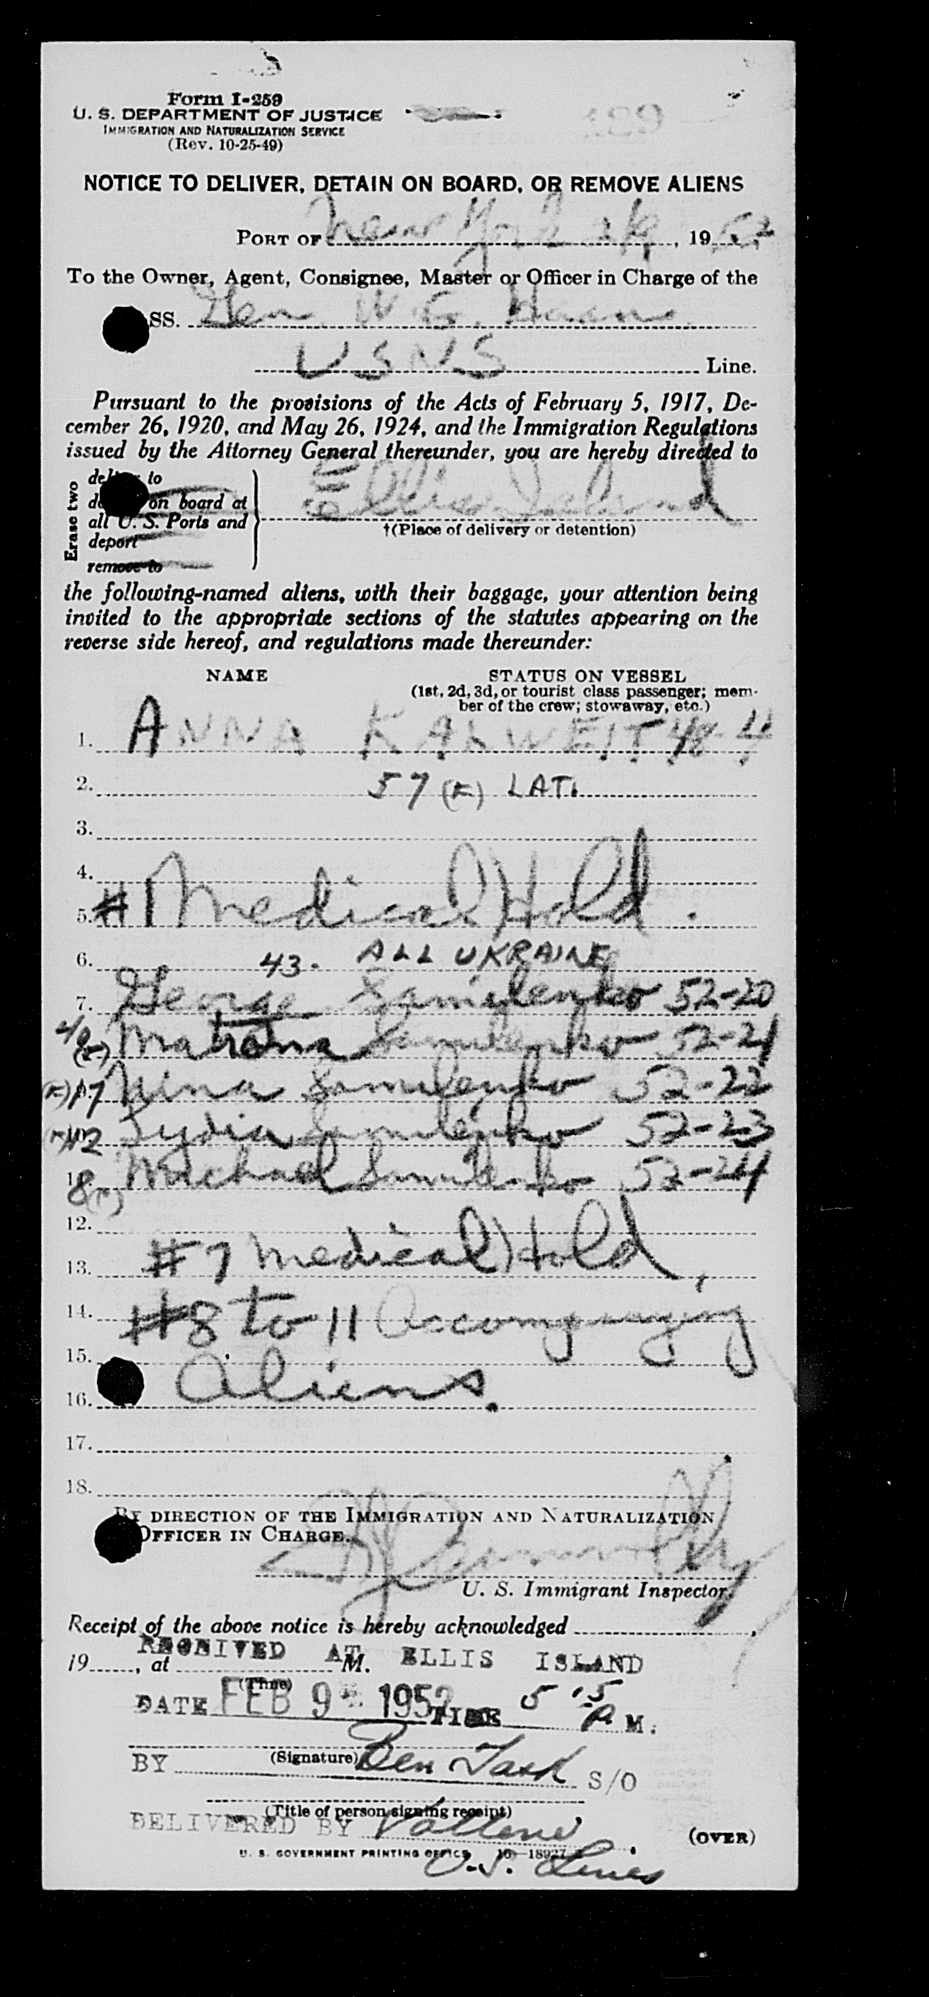 Form I-259
U. S. DEPARTMENT OF JUSTICE
IMMIGRATION AND NATURALIZATION SERVICE
(Rev. 10-25-49)
NOTICE TO DELIVER, DETAIN ON BOARD, OR REMOVE ALIENS
PORT OF New York 2/9, 1952
To the Owner, Agent, Consignee, Master or Officer in Charge of the
SS. Gen. W. G. Haan
USNS Line.
Pursuant to the provisions of the Acts of February 5, 1917, De-
cember 26, 1920, and May 26, 1924, and the Immigration Regulations
issued by the Attorney General thereunder, you are hereby directed to
Erase two
deliver to
on board at
all U. S. Ports and
deport
remove to
Ellis Island
†(Place of delivery or detention)
the following-named aliens, with their baggage, your attention being
invited to the appropriate sections of the statutes appearing on the
reverse side hereof, and regulations made thereunder:
NAME STATUS ON VESSEL
(1st, 2d, 3d, or tourist class passenger; mem-
ber of the crew; stowaway, etc.)
1. ANNA KALWEIT 48-4
2. 57 (F) LAT.
3.
4.
5. #1 Medical Hold.
6. 43. ALL UKRAINE
7. George Samilenko 52-20
Matrona Samilenko 52-21
17 Nina Samilenko 52-22
12 Lydia Samilenko 52-23
8 Michael Samilenko 52-24
12.
13. #7 Medical Hold,
14. #8 to 11 Accompanying
15.
16. Aliens.
17.
18.
BY DIRECTION OF THE IMMIGRATION AND NATURALIZATION
OFFICER IN CHARGE.
U. S. Immigrant Inspector.
Receipt of the above notice is hereby acknowledged
19 , at M.
RECEIVED AT ELLIS ISLAND
(Time)
DATE FEB 9 1952 TIME 5 15 P M.
BY (Signature) Ben Task S/O
(Title of person signing receipt)
DELIVERED BY
(OVER)
U. S. GOVERNMENT PRINTING OFFICE
U.S. Lines